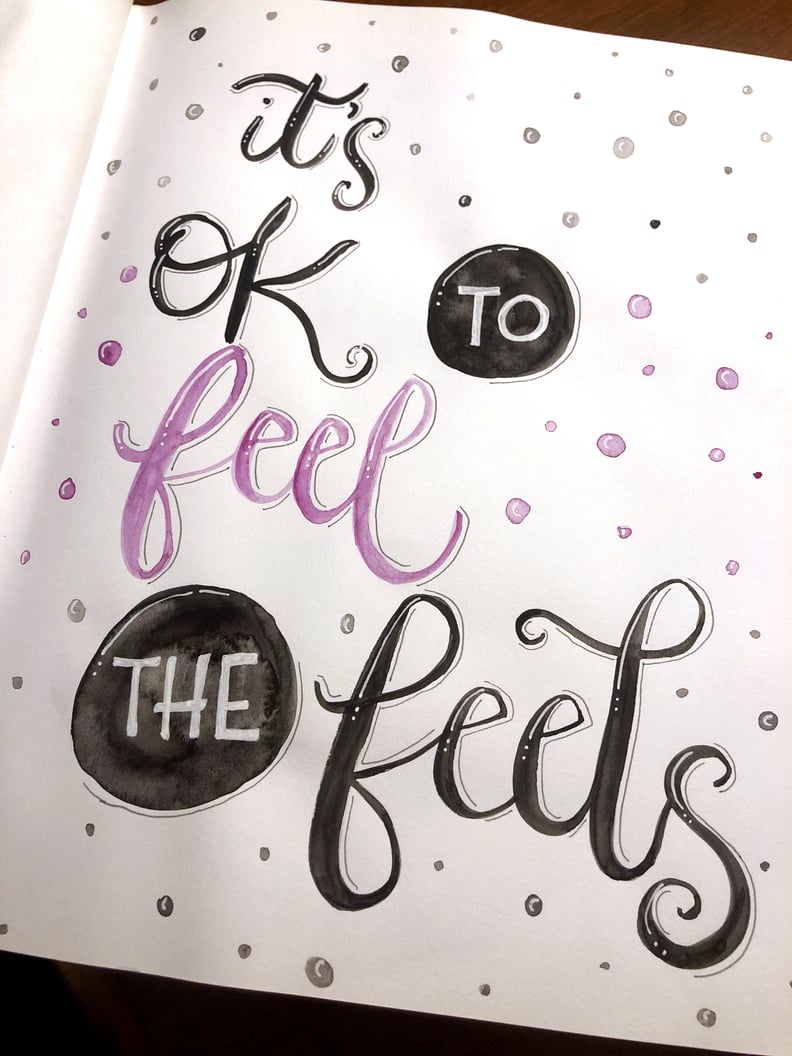 it's
OK TO
feel
THE feels